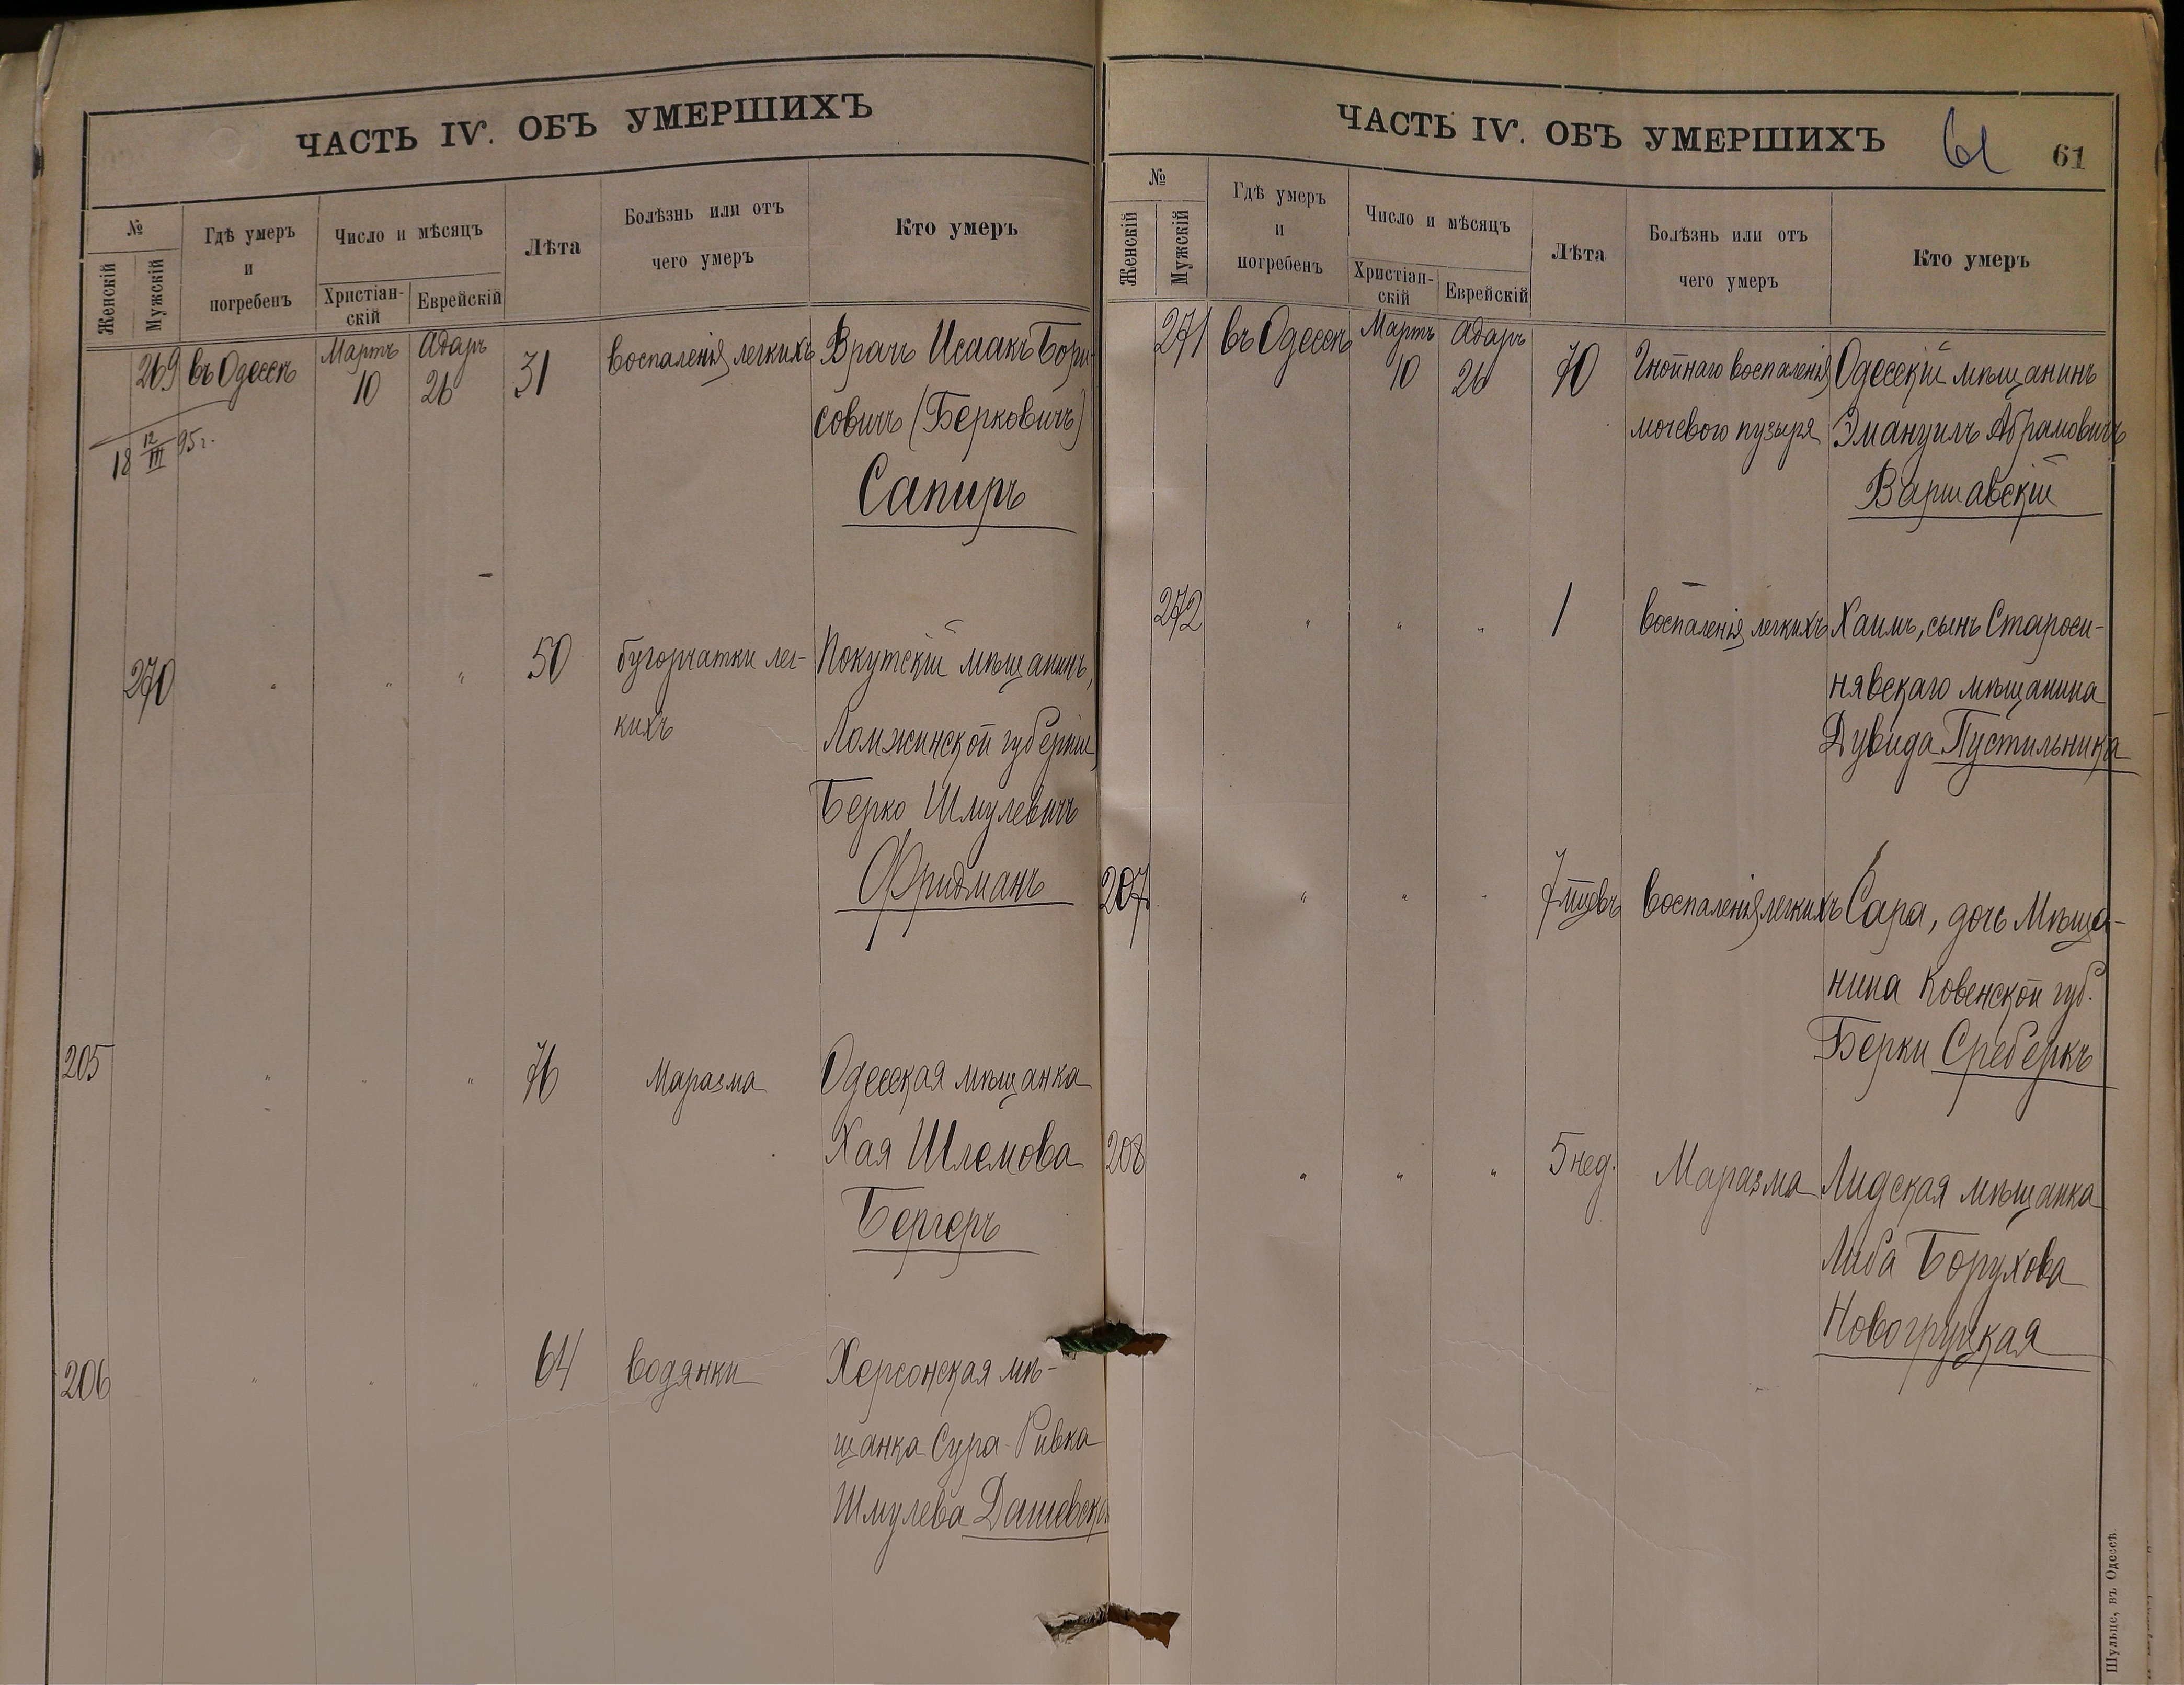 ЧАСТЬ IV. ОБЪ УМЕРШИХЪ
№
Женскій
Мужскій
Гдѣ умеръ
и
погребенъ
Число и мѣсяцъ
Христіан-
скій
Еврейскій
Лѣта
Болѣзнь или отъ
чего умеръ
Кто умеръ
269 въ Одессѣ Мартъ 10 Адаръ 26 31 воспаленія легкихъ Врачъ Исаакъ Бори-
совичъ (Берковичъ)
Сапиръ
18 12/III 95 г.
270 " " " 50 бугорчатки лег- Покутскій мѣщанинъ,
кихъ Ломжинской губерніи,
Берко Шмулевичъ
Фридманъ
205 " " " 76 Маразма Одесская мѣщанка
Хая Шлемова
Бергеръ
206 " " " 64 водянки Херсонская мѣ-
щанка Сура-Ривка
Шмулева Дашевска
ЧАСТЬ IV. ОБЪ УМЕРШИХЪ 61 61
№
Женскій
Мужскій
Гдѣ умеръ
и
погребенъ
Число и мѣсяцъ
Христіан-
скій
Еврейскій
Лѣта
Болѣзнь или отъ
чего умеръ
Кто умеръ
271 въ Одессѣ Мартъ 10 Адаръ 26 70 Гнойнаго воспаленія Одесскій мѣщанинъ
мочевого пузыря Эмануилъ Абрамовичъ
Варшавскій
272 " " " 1 воспаленія легкихъ Хаимъ, сынъ Староси-
нявскаго мѣщанина
Дувида Пустильника
207 " " " 7 воспаленія легкихъ Сара, дочь Мѣща-
нина Ковенской губ.
Берки Среберкъ
208 " " " 5 нед. Маразма Лидская мѣщанка
Либа Борухова
Новогруцкая
Шульце, въ Одессѣ.